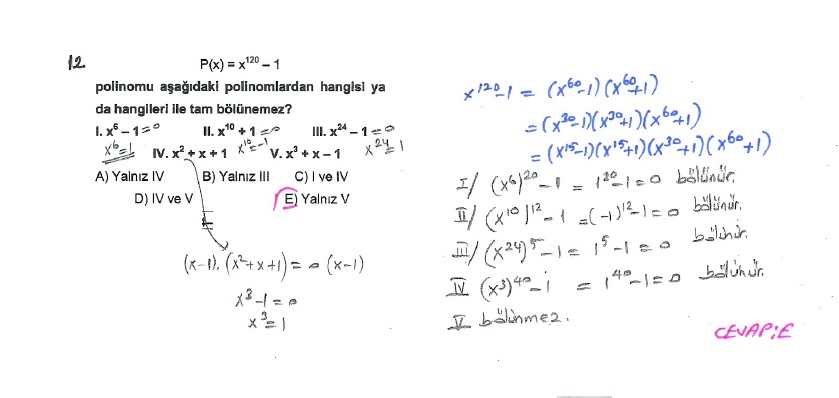 12
P(x) = x¹²⁰ – 1
polinomu aşağıdaki polinomlardan hangisi ya
da hangileri ile tam bölünemez?
I. x⁶ – 1 = 0 II. x¹⁰ + 1 = 0 III. x²⁴ – 1 = 0
x⁶=1 IV. x² + x + 1 x¹⁰=-1 V. x³ + x – 1 x²⁴=1
A) Yalnız IV B) Yalnız III C) I ve IV
D) IV ve V E) Yalnız V
(x-1). (x²+x+1) = 0 (x-1)
x³-1=0
x³=1
x¹²⁰-1 = (x⁶⁰-1)(x⁶⁰+1)
= (x³⁰-1)(x³⁰+1)(x⁶⁰+1)
= (x¹⁵-1)(x¹⁵+1)(x³⁰+1)(x⁶⁰+1)
I/ (x⁶)²⁰-1 = 1²⁰-1=0 bölünür.
II/ (x¹⁰)¹²-1 =(-1)¹²-1=0 bölünür.
III/ (x²⁴)⁵-1 = 1⁵-1=0 bölünür.
IV (x³)⁴⁰-1 = 1⁴⁰-1=0 bölünür.
V bölünmez.
CEVAP:E